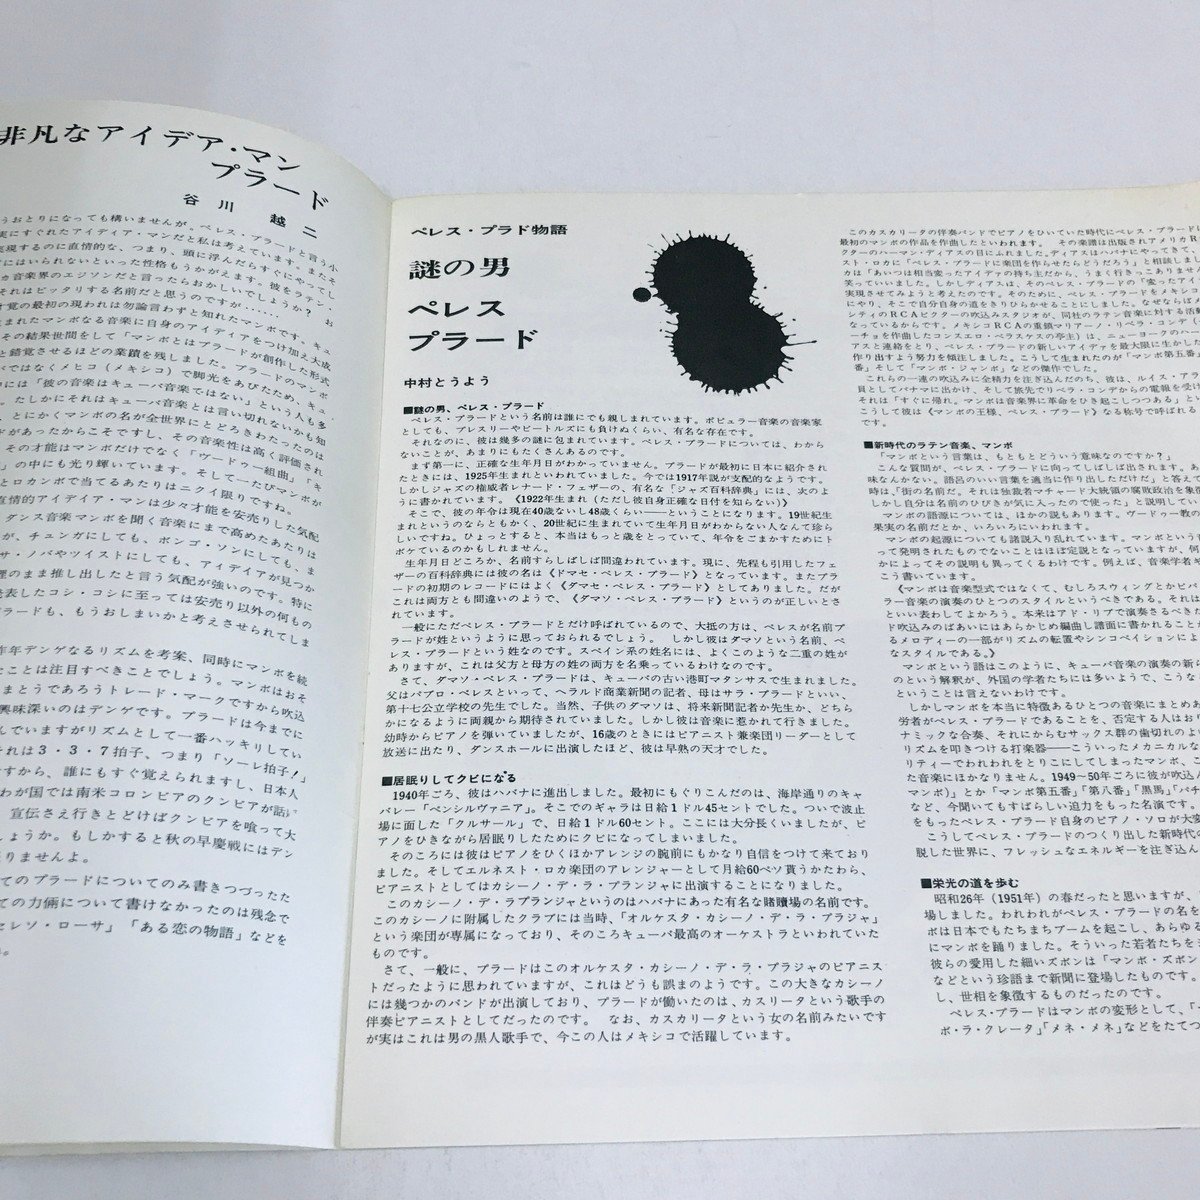 非凡なアイデア・マン
プラード
谷川 越二
うおとりになっても構いませんが。ペレス・プラードと言う小
実にすぐれたアイディア・マンだと私は考えています。またそ
実現するのに直情的な、つまり、頭に浮んだらすぐにやってし
にはいられないといった性格もうかがえます。彼をラテン・
カ音楽界のエジソンだと言ったらおかしいでしょうか？ お
それはピッタリする名前だと思うのですが………。
才覚の最初の現われは勿論言わずと知れたマンボです。キュ
まれたマンボなる音楽に自身のアイディアをつけ加え大成
その結果世間をして「マンボとはプラードが創作した形式
と錯覚させるほどの業績を残しました。プラードのマンボ
バではなくメヒコ（メキシコ）で脚光をあびたため、キュ
中には「彼の音楽はキューバ音楽ではない」という人も多
。たしかにそれはキューバ音楽とは言い切れないかも知
、とにかくマンボの名が全世界にとどろきわたったのは
ドがあったからこそですし、その音楽性は高く評価され
。その才能はマンボだけでなく「ヴードゥー組曲」「キ
」の中にも光り輝いています。そして一たびマンボが
とロカンボで当てるあたりはニクイ限りですね。
直情的アイデイア・マンは少々才能を安売りした気配
ダンス音楽マンボを聞く音楽にまで高めたあたりは
が、チュンガにしても、ボンゴ・ソンにしても、ま
サ・ノバやツイストにしても、アイディアが見つか
理のまま推し出したと言う気配が強いのです。特に
発表したコシ・コシに至っては安売り以外の何もの
プラードも、もうおしまいかと考えさせられてしま
昨年デンゲなるリズムを考案、同時にマンボを続
たことは注目すべきことでしょう。マンボはおそ
まとうであろうトレード・マークですから吹込
興味深いのはデンゲです。プラードは今までに
んでいますがリズムとして一番ハッキリしてい
それは３・３・７拍子、つまり「ソーレ拍子！」
すから、誰にもすぐ覚えられますし、日本人
わが国では南米コロンビアのクンビアが話
宣伝さえ行きとどけばクンビアを喰って大
しょうか。もしかすると秋の早慶戦にはデン
りませんよ。
てのプラードについてのみ書きつづったた
ての力倆について書けなかったのは残念で
セレソ・ローサ」「ある恋の物語」などを
。
ペレス・プラド物語
謎の男
ペレス
プラード
中村とうよう
■謎の男、ペレス・プラード
ペレス・プラードという名前は誰にでも親しまれています。ポピュラー音楽の音楽家
としても、プレスリーやビートルズにも負けぬくらい、有名な存在です。
それなのに、彼は幾多の謎に包まれています。ペレス・プラードについては、わから
ないことが、あまりにもたくさんあるのです。
まず第一に、正確な生年月日がわかっていません。プラードが最初に日本に紹介され
たときには、1925年生まれといわれていました。今では1917年説が支配的なようです。
しかしジャズの権威者レナード・フェザーの、有名な「ジャズ百科辞典」には、次のよ
うに書かれています。《1922年生まれ（ただし彼自身正確な日付を知らない）》
そこで、彼の年令は現在40歳ないし48歳くらい――ということになります。19世紀生
まれというのならともかく、20世紀に生まれていて生年月日がわからない人なんて珍ら
しいですね。ひょっとすると、本当はもっと歳をとっていて、年令をごまかすためにト
ボケているのかもしれません。
生年月日どころか、名前すらしばしば間違われています。現に、先程も引用したフェ
ザーの百科辞典には彼の名は《ドマセ・ペレス・プラード》となっています。またプラ
ードの初期のレコードにはよく《ダマセ・ペレス・プラード》としてありました。だが
これは両方とも間違いのようで、《ダマソ・ペレス・プラード》というのが正しいとさ
れています。
一般にただペレス・プラードとだけ呼ばれているので、大抵の方は、ペレスが名前プ
ラードが姓というように思っておられるでしょう。 しかし彼はダマソという名前、ペ
レス・プラードという姓なのです。スペイン系の姓名には、よくこのような二重の姓が
ありますが、これは父方と母方の姓の両方を名乗っているわけなのです。
さて、ダマソ・ペレス・プラードは、キューバの古い港町マタンサスで生まれました。
父はパブロ・ペレスといって、ヘラルド商業新聞の記者、母はサラ・プラードといい、
第十七公立学校の先生でした。当然、子供のダマソは、将来新聞記者か先生か、どちら
かになるように両親から期待されていました。しかし彼は音楽に惹かれて行きました。
幼時からピアノを弾いていましたが、16歳のときにはピアニスト兼楽団リーダーとして
放送に出たり、ダンスホールに出演したほど、彼は早熟の天才でした。
■居眠りしてクビになる
1940年ごろ、彼はハバナに進出しました。最初にもぐりこんだのは、海岸通りのキャ
バレー「ペンシルヴァニア」。そこでのギャラは日給１ドル45セントでした。ついで波止
場に面した「クルサール」で、日給１ドル60セント。ここには大分長くいましたが、ピ
アノをひきながら居眠りしたためにクビになってしまいました。
そのころには彼はピアノをひくほかアレンジの腕前にもかなり自信をつけて来ており
ました。そしてエルネスト・ロカ楽団のアレンジャーとして月給60ペソ貰うかたわら、
ピアニストとしてはカシーノ・デ・ラ・プランジャに出演することになりました。
このカシーノ・デ・ラプランジャというのはハバナにあった有名な賭賻場の名前です。
このカシーノに附属したクラブには当時、「オルケスタ・カシーノ・デ・ラ・プラジャ」
という楽団が専属になっており、そのころキューバ最高のオーケストラといわれていた
ものです。
さて、一般に、プラードはこのオルケスタ・カシーノ・デ・ラ・プラジャのピアニス
トだったように思われていますが、これはどうも誤まのようです。この大きなカシーノ
には幾つかのバンドが出演しており、プラードが働いたのは、カスリータという歌手の
伴奏ピアニストとしてだったのです。 なお、カスカリータという女の名前みたいです
が実はこれは男の黒人歌手で、今この人はメキシコで活躍しています。
このカスカリータの伴奏バンドでピアノをひいていた時代にペレス・プラードは
最初のマンボの作品を作曲したといわれます。 その楽譜は出版されアメリカR
クターのハーマン・ディアスの目にふれました。ディアスはハバナにやってきて、
スト・ロカに「ペレス・プラードに楽団を作らせたらどうだろう」と相談しまし
カは「あいつは相当変ったアイデァの持ち主だから、うまく行きっこありません
笑っていいました。しかしディアスは、そのペレス・プラードの「変ったアイデ
実現させてみようと考えたのです。そのために、ペレス・プラードをメキシコ
にやり、そこで自分自身の道をきりひらかせることにしました。なぜならばメ
シティのＲＣＡビクターの吹込みスタジオが、同社のラテン音楽に対する活動
なっているからです。メキシコＲＣＡの重鎮マリアーノ・リベラ・コンデ（
ーチョを作曲したコンスエロ・ベラスケスの亭主）は、ニューヨークのハー
アスと連絡をとり、ペレス・プラードの新しいアイデァを最大限に生かした
作り出すよう努力を傾注しました。こうして生まれたのが「マンボ第五番」
番」そして「マンボ・ジャンボ」などの傑作でした。
これらの一連の吹込みに全精力を注ぎ込んだのち、彼は、ルイス・アラ
員としてパナマに出かけ、そして旅先でリベラ・コンデからの電報を受け
それは「すぐに帰れ。マンボは音楽界に革命をひき起こしつつある」とい
こうして彼は《マンボの王様、ペレス・プラード》なる称号で呼ばれる
です。
■新時代のラテン音楽、マンボ
「マンボという言葉は、もともとどういう意味なのですか？」
こんな質問が、ペレス・プラードに向ってしばしば出されます。あ
味なんかない。語呂のいい言葉を適当に作り出しただけだ」と答えて
時は、「街の名前だ。それは独裁者マチャード大統領の腐敗政治を象
しかし自分は名前のひびきが気に入ったので使った」と説明してい
マンボの語源については、ほかの説もあります。ヴードゥー教の
果実の名前だとか、いろいろにいわれます。
マンボの起源についても諸説入り乱れています。マンボという音
って発明されたものでないことはほぼ定説となっていますが、何
かによってその説明も異ってくるわけです。例えば、音楽学者ギ
こう書いています。
《マンボは音楽型式ではなくて、むしろスウィングとかビバッ
ラー音楽の演奏のひとつのスタイルというべきである。それは
といい表わしてよかろう。本来はアド・リブで演奏さるべきか
ド吹込みのばあいにはあらかじめ編曲し譜面に書かれることが
るメロディーの一部がリズムの転置やシンコペイションによ
なスタイルである。》
マンボという語はこのように、キューバ音楽の演奏の新ら
のという解釈が、外国の学者たちには多いようで、こうな
ということは言えないわけです。
しかしマンボを本当に特徴あるひとつの音楽にまとめあ
労者がペレス・プラードであることを、否定する人はおり
ナミックな合奏、それにからむサックス群の歯切れのよい
リズムを叩きつける打楽器――こういったメカニカルな
リティーでわれわれをとりこにしてしまったマンボ、こ
た音楽にほかなりません。1949～50年ごろに彼が吹込ん
マンボ」とか「マンボ第五番」「第八番」「黒馬」「パチ
など、今聞いてもすばらしい迫力をもった名演です。
をもったペレス・プラード自身のピアノ・ソロが大変
こうしてペレス・プラードのつくり出した新時代の
説した世界に、フレッシュなエネルギーを注ぎ込ん
■栄光の道を歩む
昭和26年（1951年）の春だったと思いますが、
場しました。われわれがペレス・プラードの名を
ボは日本でもたちまちブームを起こし、あらゆる
にマンボを踊りました。そういった若者たちを
彼らの愛用した細いズボンは「マンボ・ズボン
などという珍語まで新聞に登場したものです。
し、世相を象徴するものだったのです。
ペレス・プラードはマンボの変形として、「
ボ・ラ・クレータ」「メネ・メネ」などをたてつ